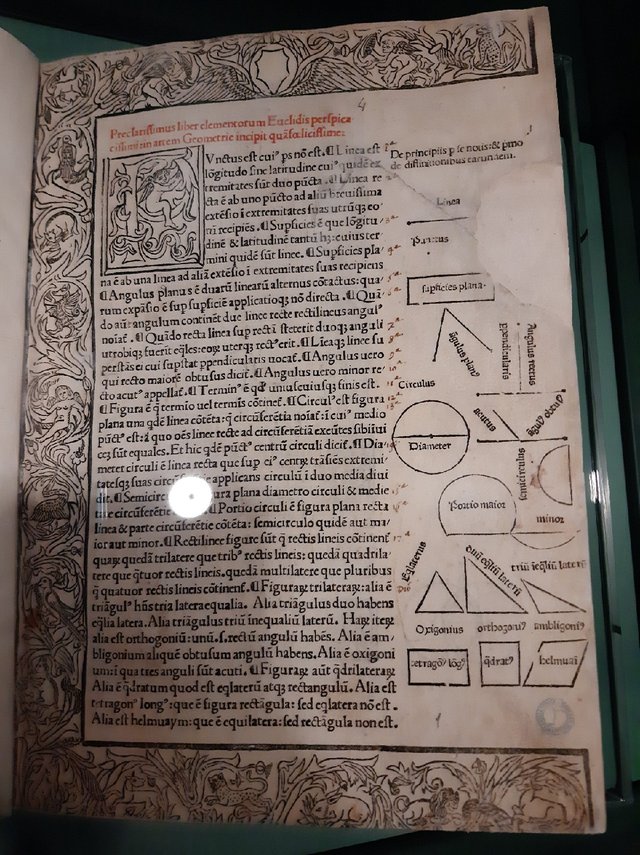 4
Preclarissimus liber elementorum Euclidis perspica
cissimi: in artem Geometrie incipit quãfoelicissime:
Vnctus est cuiꝰ ps nõ est. ¶ Linea est
lõgitudo sine latitudine cuiꝰ quidẽ ex
tremitates sũt duo pũcta. ¶ Linea re
cta ẽ ab uno pũcto ad aliũ breuissima
extẽsio ĩ extremitates suas utrũqꝫ eo
rũ recipiẽs. ¶ Supficies ẽ que lõgitu
dinẽ & latitudinẽ tantũ hꝫ: cuius ter
mini quidẽ sũt linee. ¶ Supficies pla
na ẽ ab una linea ad aliã extẽsio ĩ extremitates suas recipiens
¶ Angulus planus ẽ duarũ linearũ alternus cõtactus: qua
rum expãsio ẽ sup supficiẽ applicatioqꝫ nõ directa. ¶ Quã
do aũt angulum continẽt due linee recte rectilineus angulꝰ
noiat̃. ¶ Quãdo recta linea sup rectã steterit duoqꝫ anguli
utrobiqꝫ fuerit eq̃les: eoꝝ uterqꝫ rectꝰ erit. ¶ Lineaqꝫ linee su
perstãs ei cui supstat ppendicularis uocat̃. ¶ Angulus uero
qui recto maior ẽ obtusus dicit̃. ¶ Angulus uero minor re
cto acutꝰ appellat̃. ¶ Terminꝰ ẽ qđ uniuscuiusqꝫ finis est.
¶ Figura ẽ q̃ termio uel termis cõtinet̃. ¶ Circulꝰ est figura
plana una qdẽ linea cõtẽta: q̃ circũferẽtia noiat̃: ĩ cuiꝰ medio
pũctꝰ est: a quo oẽs linee recte ad circũferẽtiã exeũtes sibiiui
cẽ sũt equales. Et hic qdẽ pũctꝰ cẽtrũ circuli dicit̃. ¶ Dia
meter circuli ẽ linea recta que sup eiꝰ centꝝ trãsiẽs extremi
tatesqꝫ suas circũferẽtie applicans circulũ ĩ duo media diui
dit. ¶ Semicirculus ẽ figura plana diametro circuli & medie
tate circũferẽtie cõtẽta. ¶ Portio circuli ẽ figura plana recta
linea & parte circũferẽtie cõtẽta: semicirculo quidẽ aut ma
ior aut minor. ¶ Rectilinee figure sũt q̃ rectis lineis cõtinent̃
quaꝝ quedã trilatere que tribꝰ rectis lineis: quedã quadrila
tere que q̃tuor rectis lineis. quedã multilatere que pluribus
q̃ quatuor rectis lineis cõtinent̃. ¶ Figuraꝝ trilateraꝝ: alia ẽ
triãgulꝰ hñs tria latera equalia. Alia triãgulus duo habens
eq̃lia latera. Alia triãgulus triũ inequaliũ laterũ. Haꝝ iteꝝ
alia est orthogoniũ: unũ .s. rectũ angulũ habẽs. Alia ẽ am
bligonium aliquẽ obtusum angulũ habens. Alia ẽ oxigoni
um: ĩ qua tres anguli sũt acuti. ¶ Figuraꝝ aũt q̃drilateraꝝ
Alia ẽ q̃dratum quod est eq̃laterũ atqꝫ rectangulũ. Alia est
tetragonꝰ longꝰ: que ẽ figura rectãgula: sed eq̃latera nõ est.
Alia est helmuaym: que ẽ equilatera: sed rectãgula non est.
De principiis p se notis: & pmo
de diffinitionibus earundem.
Linea
Punctus
supficies plana
ãgulus planꝰ
ppendicularis
Angulus rectus
Circulus
Diameter
acutus
ãgulꝰ obtusꝰ
semicirculus
Portio maior
minor
Eq̃laterus
duũ eq̃liũ laterũ
triũ ineq̃liũ laterũ
Oxigonius
orthogoniꝰ
ambligoniꝰ
tetragõꝰ lõgꝰ
q̃dratꝰ
helmuaĩ